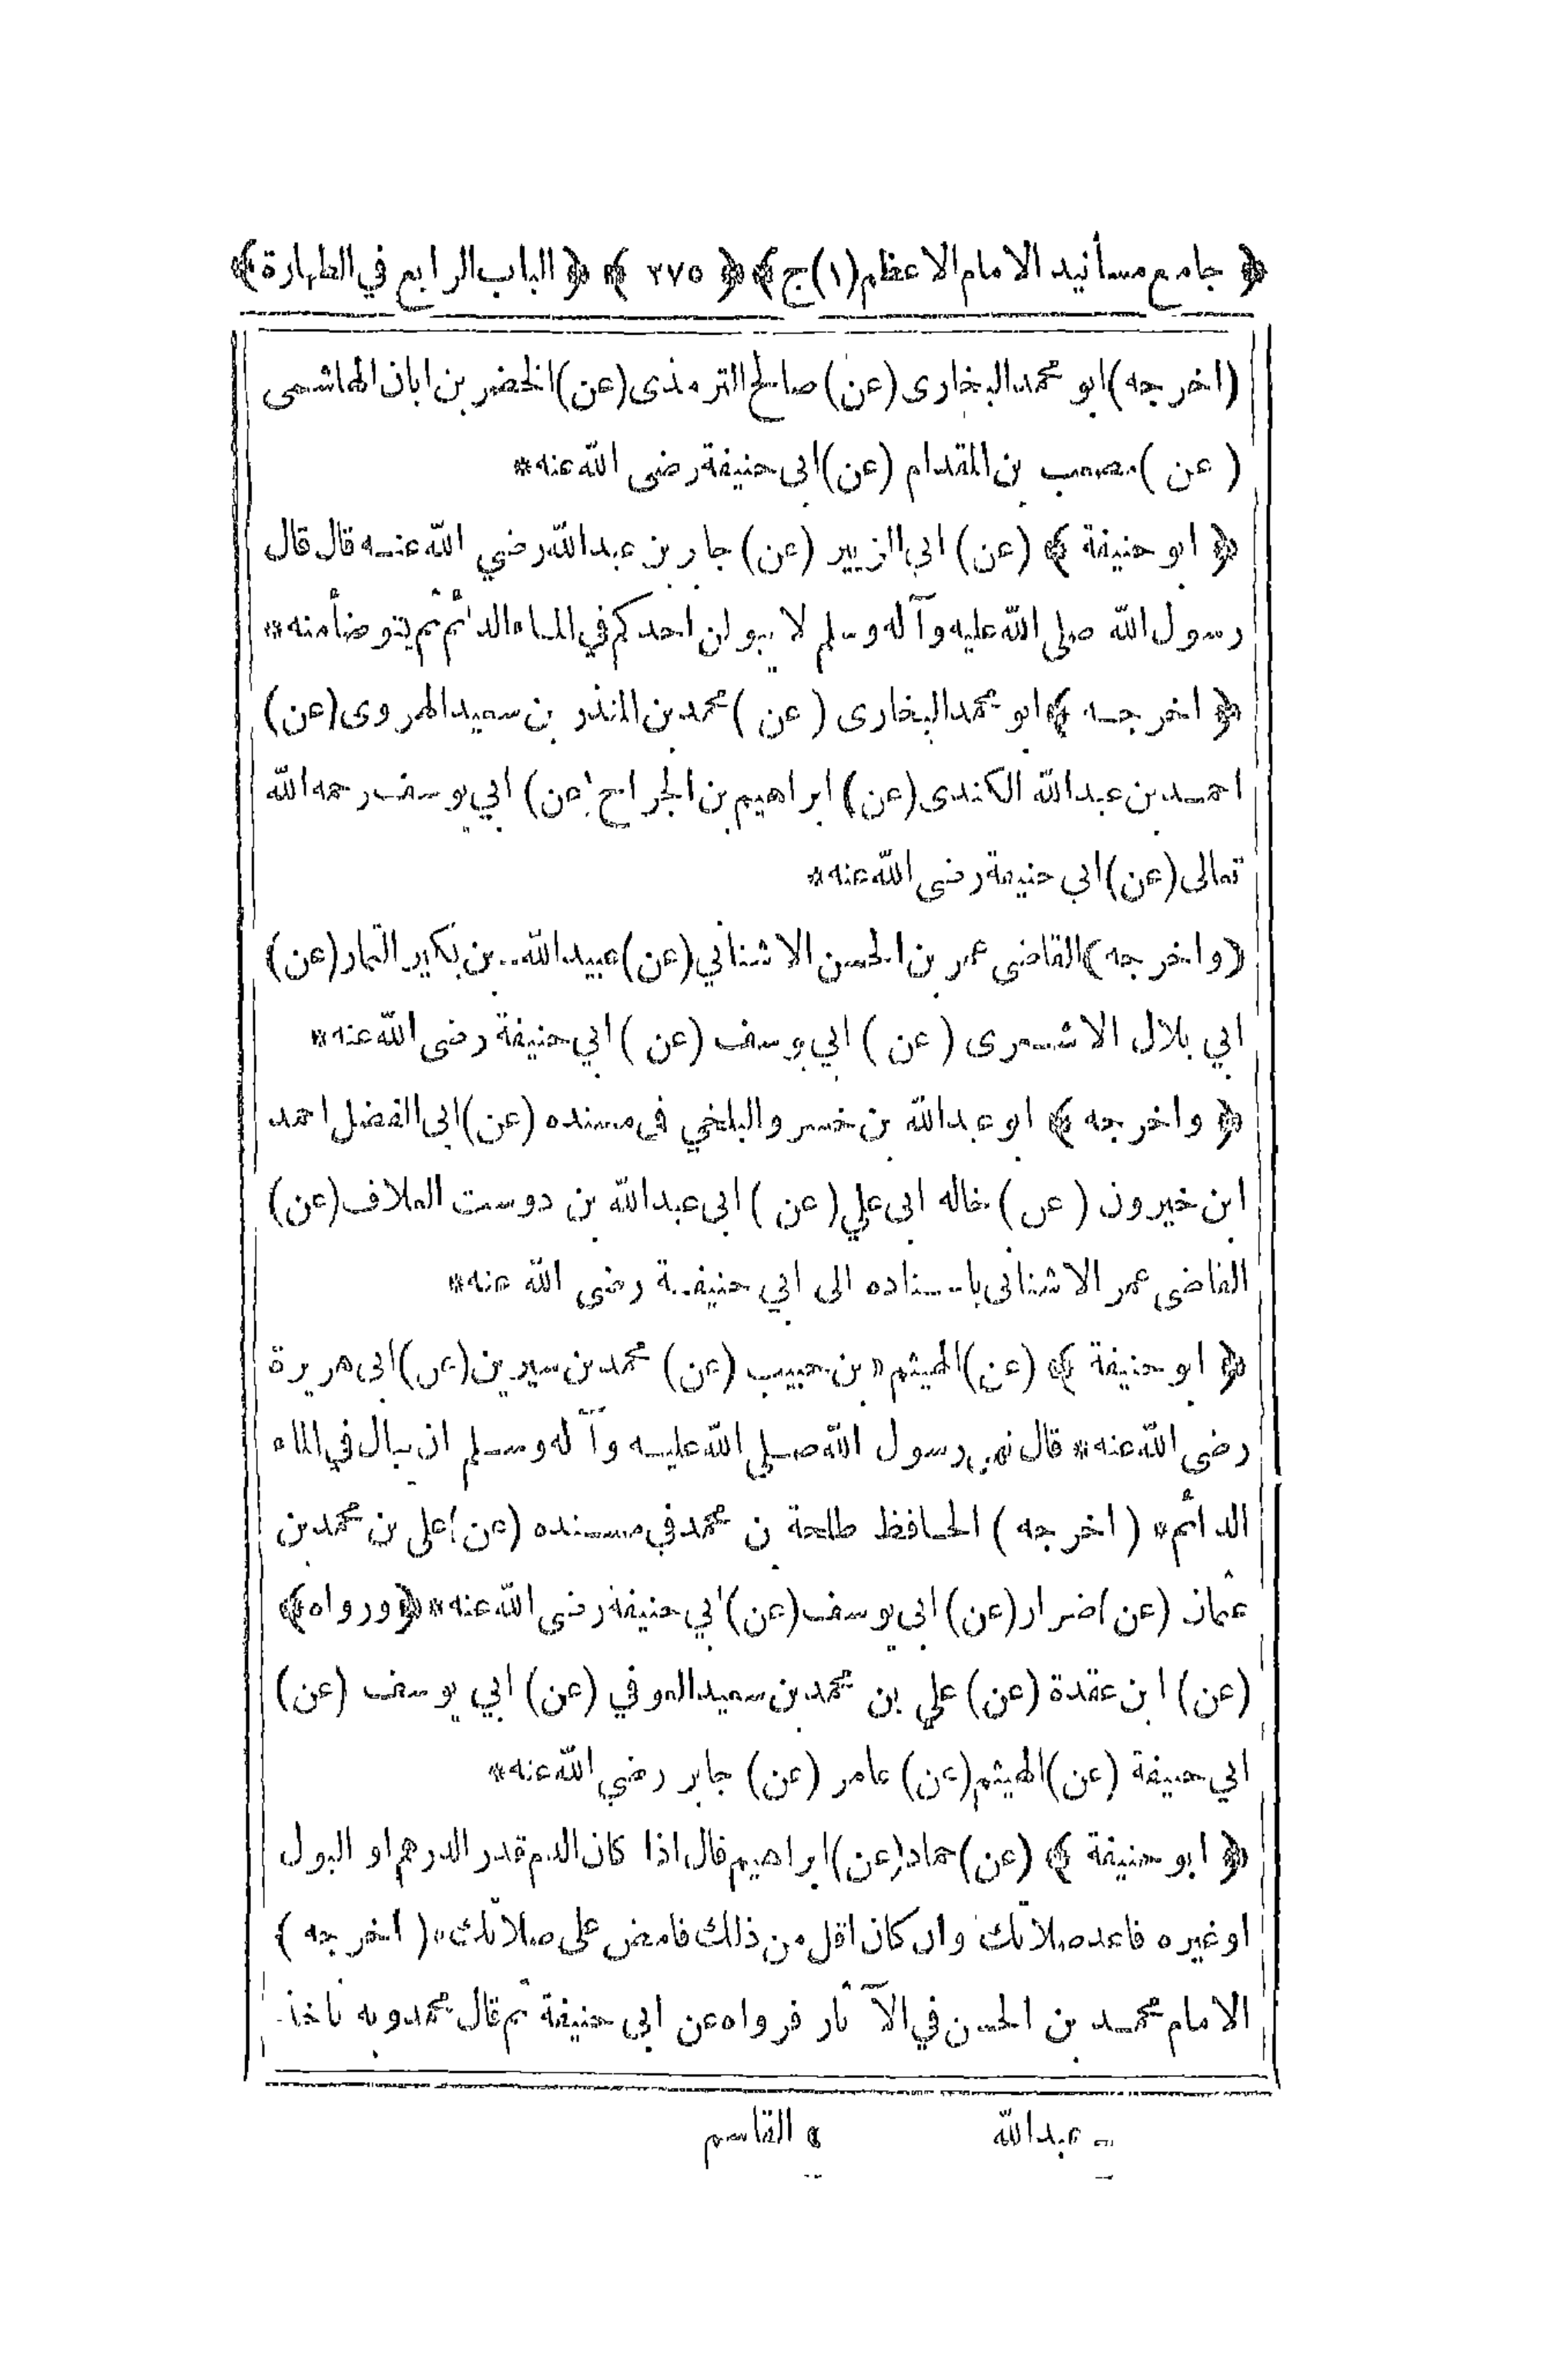 ﴿ جامع مسانيد الامام الاعظم (١) ج ﴾ ﴿ ٢٧٥ ﴾ ﴿ الباب الرابع في الطهارة ﴾
(اخرجه) ابو محمد البخارى (عن) صالح الترمذى (عن) الخضر بن ابان الهاشمى
( عن ) مصعب بن المقدام (عن) ابى حنيفة رضى الله عنه*
﴿ ابو حنيفة ﴾ (عن) ابي الزبير (عن) جابر بن عبد الله رضي الله عنه قال قال
رسول الله صلى الله عليه وآله وسلم لا يبولن احدكم في الماء الدائم ثم يتوضأ منه*
﴿ اخرجه ﴾ ابو محمد البخارى ( عن ) محمد بن المنذر بن سعيد الهروى (عن)
احمد بن عبد الله الكندى (عن) ابراهيم بن الجراح (عن) ابي يوسف رحمه الله
تعالى (عن) ابي حنيفة رضى الله عنه*
(واخرجه) القاضى عمر بن الحسن الاشناني (عن) عبيد الله بن بكير التمار (عن)
ابي بلال الاشعرى ( عن ) ابي يوسف (عن ) ابي حنيفة رضى الله عنه*
﴿ واخرجه ﴾ ابو عبد الله بن خسر والبلخي فى مسنده (عن) ابى الفضل احمد
ابن خيرون ( عن ) خاله ابى علي (عن ) ابى عبد الله بن دوست العلاف (عن)
القاضى عمر الاشنانى باسناده الى ابي حنيفة رضى الله عنه*
﴿ ابو حنيفة ﴾ (عن) الهيثم * بن حبيب (عن) محمد بن سيرين (عن) ابى هريرة
رضى الله عنه* قال نهى رسول الله صلى الله عليه وآله وسلم ان يبال في الماء
الدائم* ( اخرجه ) الحافظ طلحة بن محمد في مسنده (عن) على بن محمد بن
عثمان (عن) ضرار (عن) ابى يوسف (عن) ابي حنيفة رضى الله عنه* ﴿ورواه﴾
(عن) ابن عقدة (عن) علي بن محمد بن سعيد العوفي (عن) ابي يوسف (عن)
ابي حنيفة (عن) الهيثم (عن) عامر (عن) جابر رضي الله عنه*
﴿ ابو حنيفة ﴾ (عن) حماد (عن) ابراهيم قال اذا كان الدم قدر الدرهم او البول
او غيره فاعد صلاتك وان كان اقل من ذلك فامض على صلاتك* ( اخرجه )
الامام محمد بن الحسن في الآثار فرواه عن ابى حنيفة ثم قال محمد وبه ناخذ
عبد الله القاسم